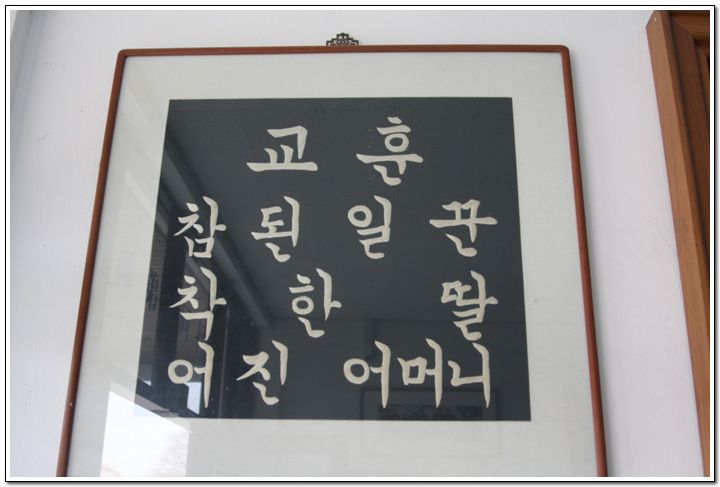 교 훈
참 된 일 꾼
착 한 딸
어 진 어머니